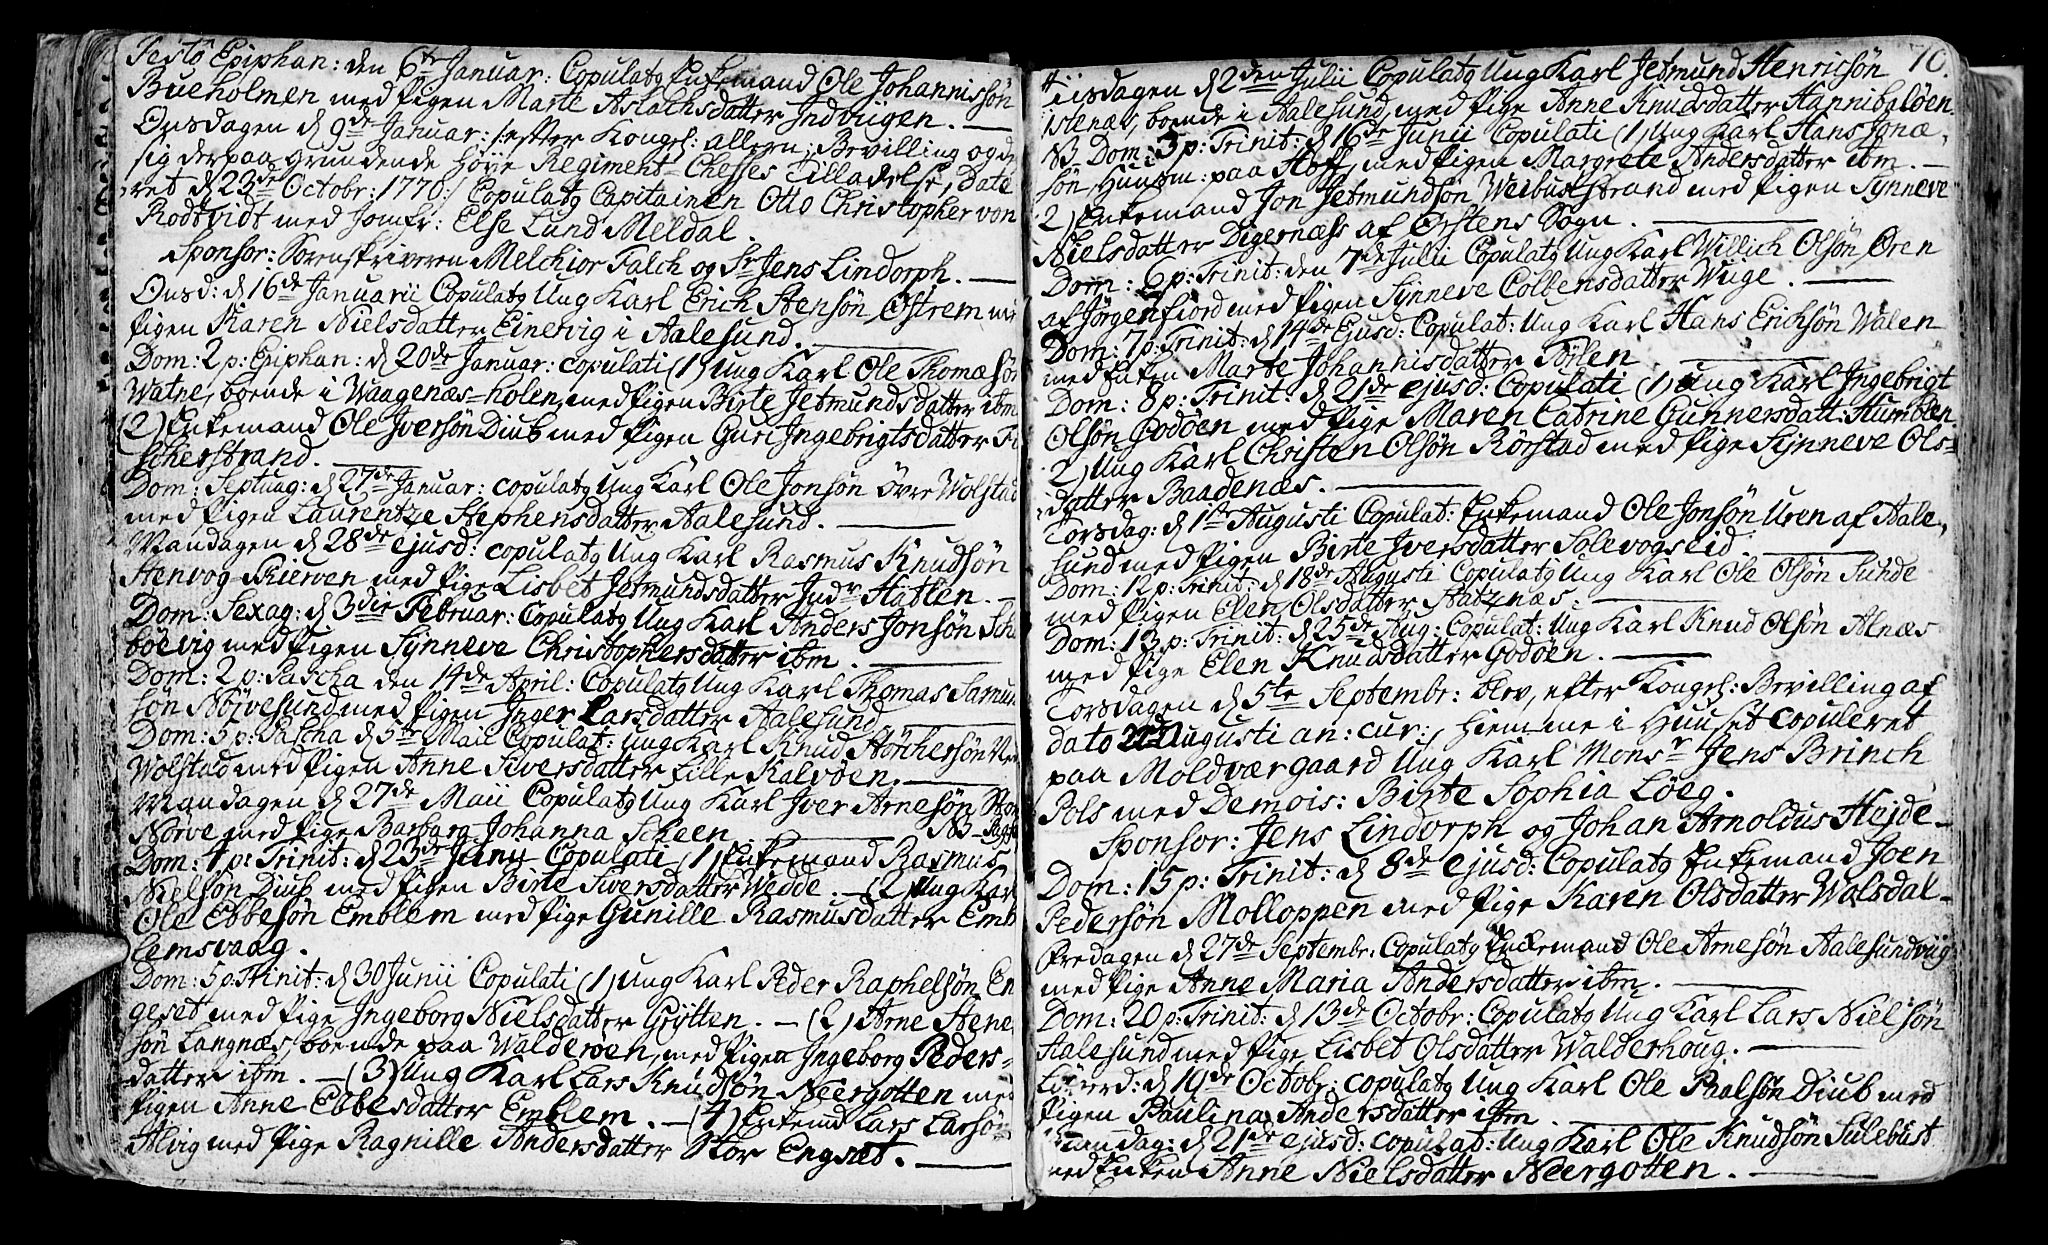 Festo Epiphan: den 6te Januar: Copulatq Enkemand Ole Johannisøn
Bueholmen med Pigen Marte Aslachsdatter Indviigen.
Onsdagen d 9de Januar: /: efter Kongel: allern: Bevilling og d
sig derpaa grundende Høye Regiment-Chefses Tilladelse, Date
ret d 23de Octobr: 1770:/ Copulatq Capitainen Otto Christopher von
Rodtvidt med Jomfr: Else Lund Meldal.
Sponsor: Sorenskriveren Melchior Falch og Sr Jens Lindorph.
Onsd: d 16de Januarii Copulatq Ung Karl Erich Stensøn Østrem me
Pigen Karen Nielsdatter Einevig i Aalesund.
Dom: 2 p: Epiphan: d 20de Januar: copulati (1) Ung Karl Ole Thomæsøn
Watne, boende i Waagenæs-holen, med Pigen Birte Jetmundsdatter ibm
(2) Enkemand Ole Iversøn Diub med Pigen Guri Ingebrigtsdatter Fi
scherstrand.
Dom: Septuag: d 27de Januar: copulatq Ung Karl Ole Jonsøn øvre Wolstad
med Pigen Laurentze Stephensdatter Aalesund.
Mandagen d 28de ejusd: copulatq Ung Karl Rasmus Knudsøn
Stenvog-Skierven med Pige Lisbet Jetmundsdatter Indr Hatlen.
Dom: Sexag: d 3die Februar: Copulatq Ung Karl Anders Jonsøn Sch
bøevig med Pigen Synneve Christophersdatter ibm.
Dom: 2 p: Pascha den 14de April: Copulatq Ung Karl Thomas Samu
søn Nørvesund med Pigen Inger Larsdatter Aalesund.
Dom: 5 p: Pascha d 5te Maii Copulat: Ung Karl Knud Størchersøn
Wolstad med Pigen Anne Siversdatter Lille Kalvøen.
Mandagen d 27de Maii Copulatq Ung Karl Iver Arnesøn Stor
Nørve med Pige Barbara Johanna Scheen. NB
Dom: 4 p: Trinit: d 23de Junii Copulati (1) Enkemand Rasmus
Nielsøn Diub med Pigen Birte Siversdatter Wedde. - (2) Ung Karl
Ole Ebbesøn Emblem med Pige Gunille Rasmusdatter Emb
lemsvaag.
Dom: 5 p: Trinit: d 30 Junii Copulati (1) Ung Karl Peder Raphelsøn En
geset med Pige Ingeborg Nielsdatter Grytten. - (2) Arne Stene
søn Langnæs, boende paa Walderøen, med Pigen Ingeborg Peders-
datter ibm. - (3) Ung Karl Lars Knudsøn Neergotten med
Pigen Anne Ebbesdatter Emblem. - (4) Enkemd Lars Larsøn
Alvig med Pige Ragnille Andersdatter Stor Engsæt.
70.
Tiisdagen d 2den Julii Copulatq Ung Karl Jetmund Henricsøn
Istenæs, boende i Aalesund, med Pige Anne Knudsdatter Hannibaløen
NB Dom: 3 p: Trinit: d 16de Junii Copulati (1) Ung Karl Hans Jonæ
søn, Huusm: paa Hoff, med Pigen Margrete Andersdatter ibm.
2) Enkemand Jon Jetmundsøn Weibustrand med Pigen Synneve
Nielsdatter Digernæs af Ørstens Sogn.
Dom: 6 p: Trinit: den 7de Julii Copulatq Ung Karl Willich Olsøn Øren
af Jørgenfiord med Pigen Synneve Colbensdatter Wuge.
Dom: 7 p: Trinit: d 14de Ejusd: Copulat: Ung Karl Hans Ericksøn Walen
med Enken Marte Johannisdatter Bølen
Dom: 8 p: Trinit: d 21de ejusd: Copulati (1) Ung Karl Ingebrigt
Olsøn Godøen med Pige Maren Catrine Gunnersdatt: Humblen
2) Ung Karl Christen Olsøn Rørstad med Pige Synneve Ols-
datter Baadenæs.
Torsdag: d 1ste Augusti Copulat: Enkemand Ole Jonsøn Uren af Aale-
sund med Pigen Birte Iversdatter Solevogseid.
Dom: 12 p: Trinit: d 18de Augusti Copulatq Ung Karl Ole Olsøn Sunde
med Pigen Elen Olsdatter Aatznæs.
Dom: 13 p: Trinit: d 25de Aug: Copulat: Ung Karl Knud Olsøn Alnæs
med Pige Elen Knudsdatter Godøen.
Torsdagen d 5te Septembr: blev, efter Kongel: Bevilling af
dato 2den Augusti an: cur:, hiemme i Huuset copuleret
paa Moldværgaard Ung Karl Monsr Jens Brinch
Pols med Demois: Birte Sophia Løeg.
Sponsor: Jens Lindorph og Johan Arnoldus Hejde
Dom: 15 p: Trinit: d 8de ejusd: Copulatq Enkemand Joen
Pedersøn Molloppen med Pige Karen Olsdatter Wolsdal
Fredagen d 27de Septembr: Copulatq Enckemand Ole Arnesøn Aalesundviig
med Pige Anne Maria Andersdatter ibm.
Dom: 20 p: Trinit: d 13de Octobr: Copulatq Ung Karl Lars Nielsøn
Aalesund med Pige Lisbet Olsdatter Walderhoug.
Løverd: d 19de Octobr: copulatq Ung Karl Ole Paalsøn Diub med
Pigen Paulina Andersdatter ibm.
Mandag: d 21de ejusd: copulat: Ung Karl Ole Knudsøn Sulebust
med Enken Anne Nielsdatter Neergotten.